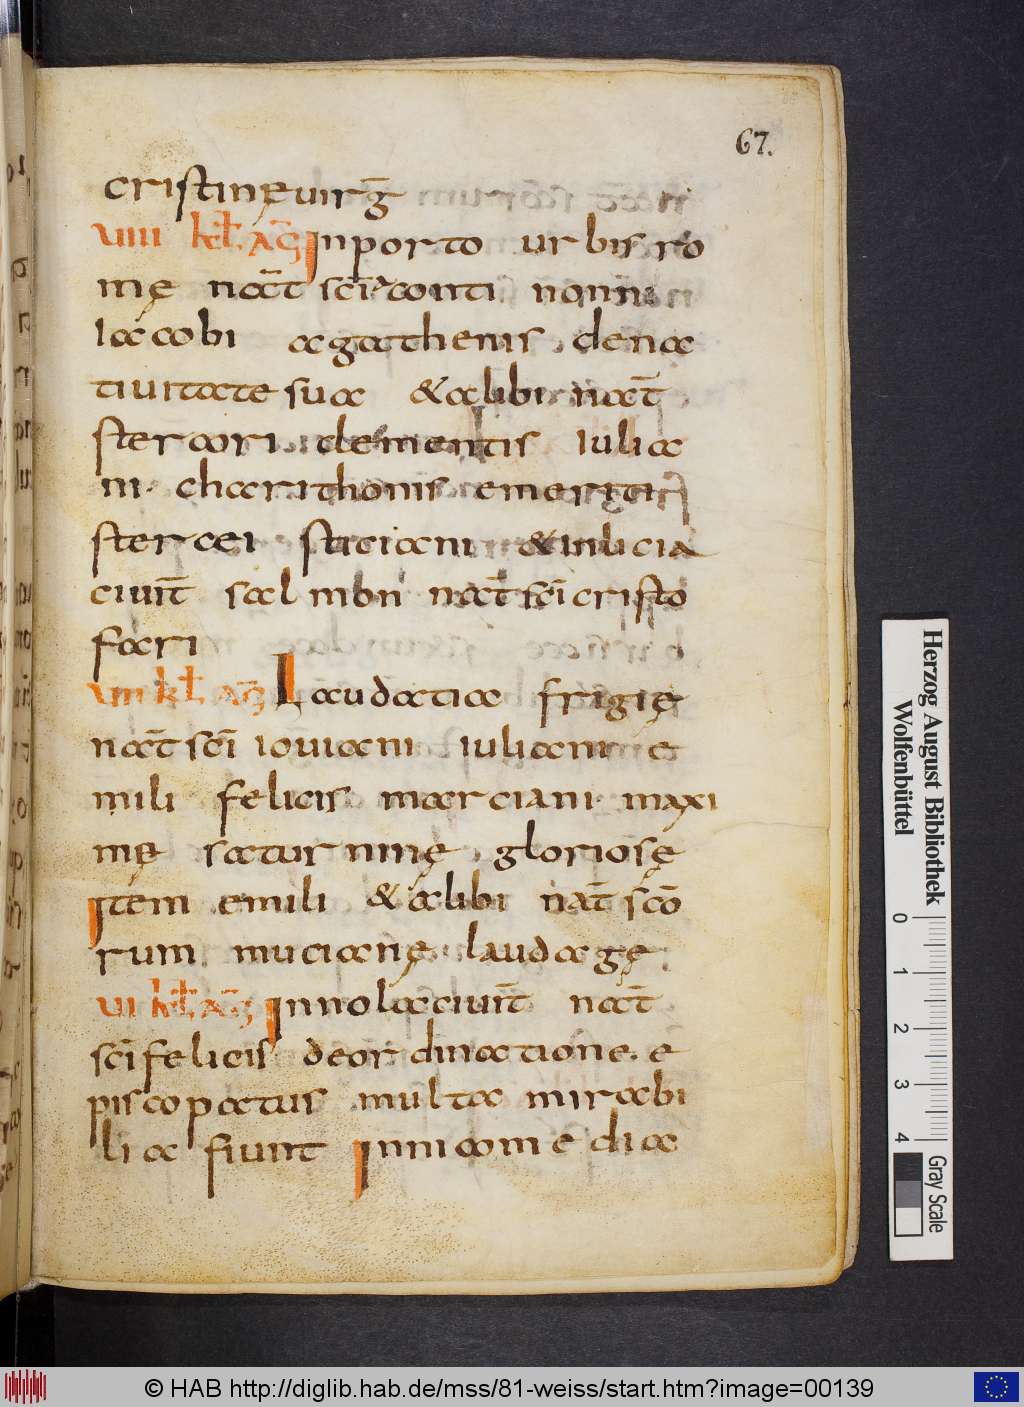 67.
cristinę uirḡ
VIIII kł. AḠ Inporto urbis ro
mę nat̄ sc̄i aconti nonni
Iacobi agathenis dena
tiuitate sua & alibi nat̄
stercori clementis Iulia
ni charithonis emeriti
stercei sticiani & in licia
ciuit̄ sal mon nat̄ sc̄i cristo
fari
VIII kł. AḠ Laudatia frigię
nat̄ sc̄i iouiani iuliani e
mili felicis marciani maxi
mę saturninę gloriosę
Item emili & alibi nat̄ sc̄o
rum mucianę laudagę
VI kł. AḠ In nola ciuit̄ nat̄
sc̄i felicis de ordinatione e
piscopatus multa mirabi
lia fiunt In nicomedia
Herzog August Bibliothek
Wolfenbüttel
0 1 2 3 4
Gray Scale
© HAB http://diglib.hab.de/mss/81-weiss/start.htm?image=00139